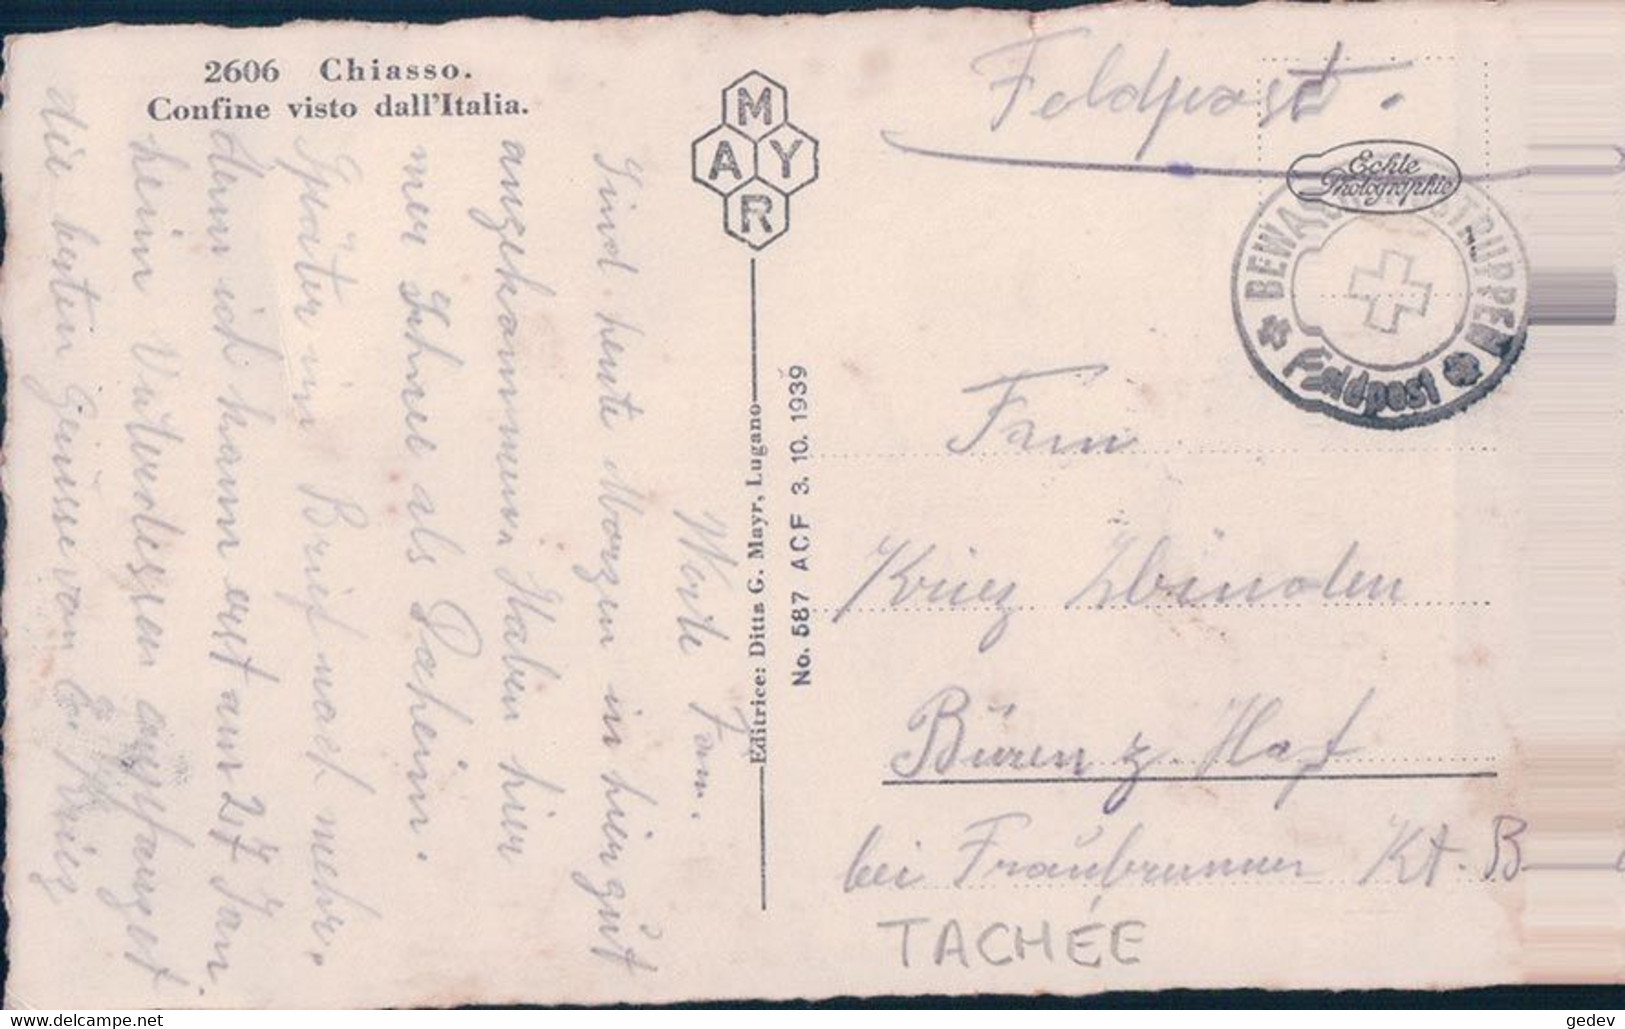 2606 Chiasso.
Confine visto dall'Italia.
MAYR
Editrice: Ditta G. Mayr, Lugano
No. 587 ACF 3. 10. 1939
Feldpost.
Echte
Photographie
BEWA TRUPPEN
Feldpost
Fam
Krieg Zbinden
Büren z. Hof
bei Fraübrunnen Kt. B
TACHÉE
Werte Fam.
Sind heute Morgen in hier gut
angekommenen Haben hier
mer Schnee als Daheim.
Später im Brief noch mehr.
denn ich kann erst am 27 Jan.
heim
die besten Grüsse von Krieg
Delcampe.net
gedev